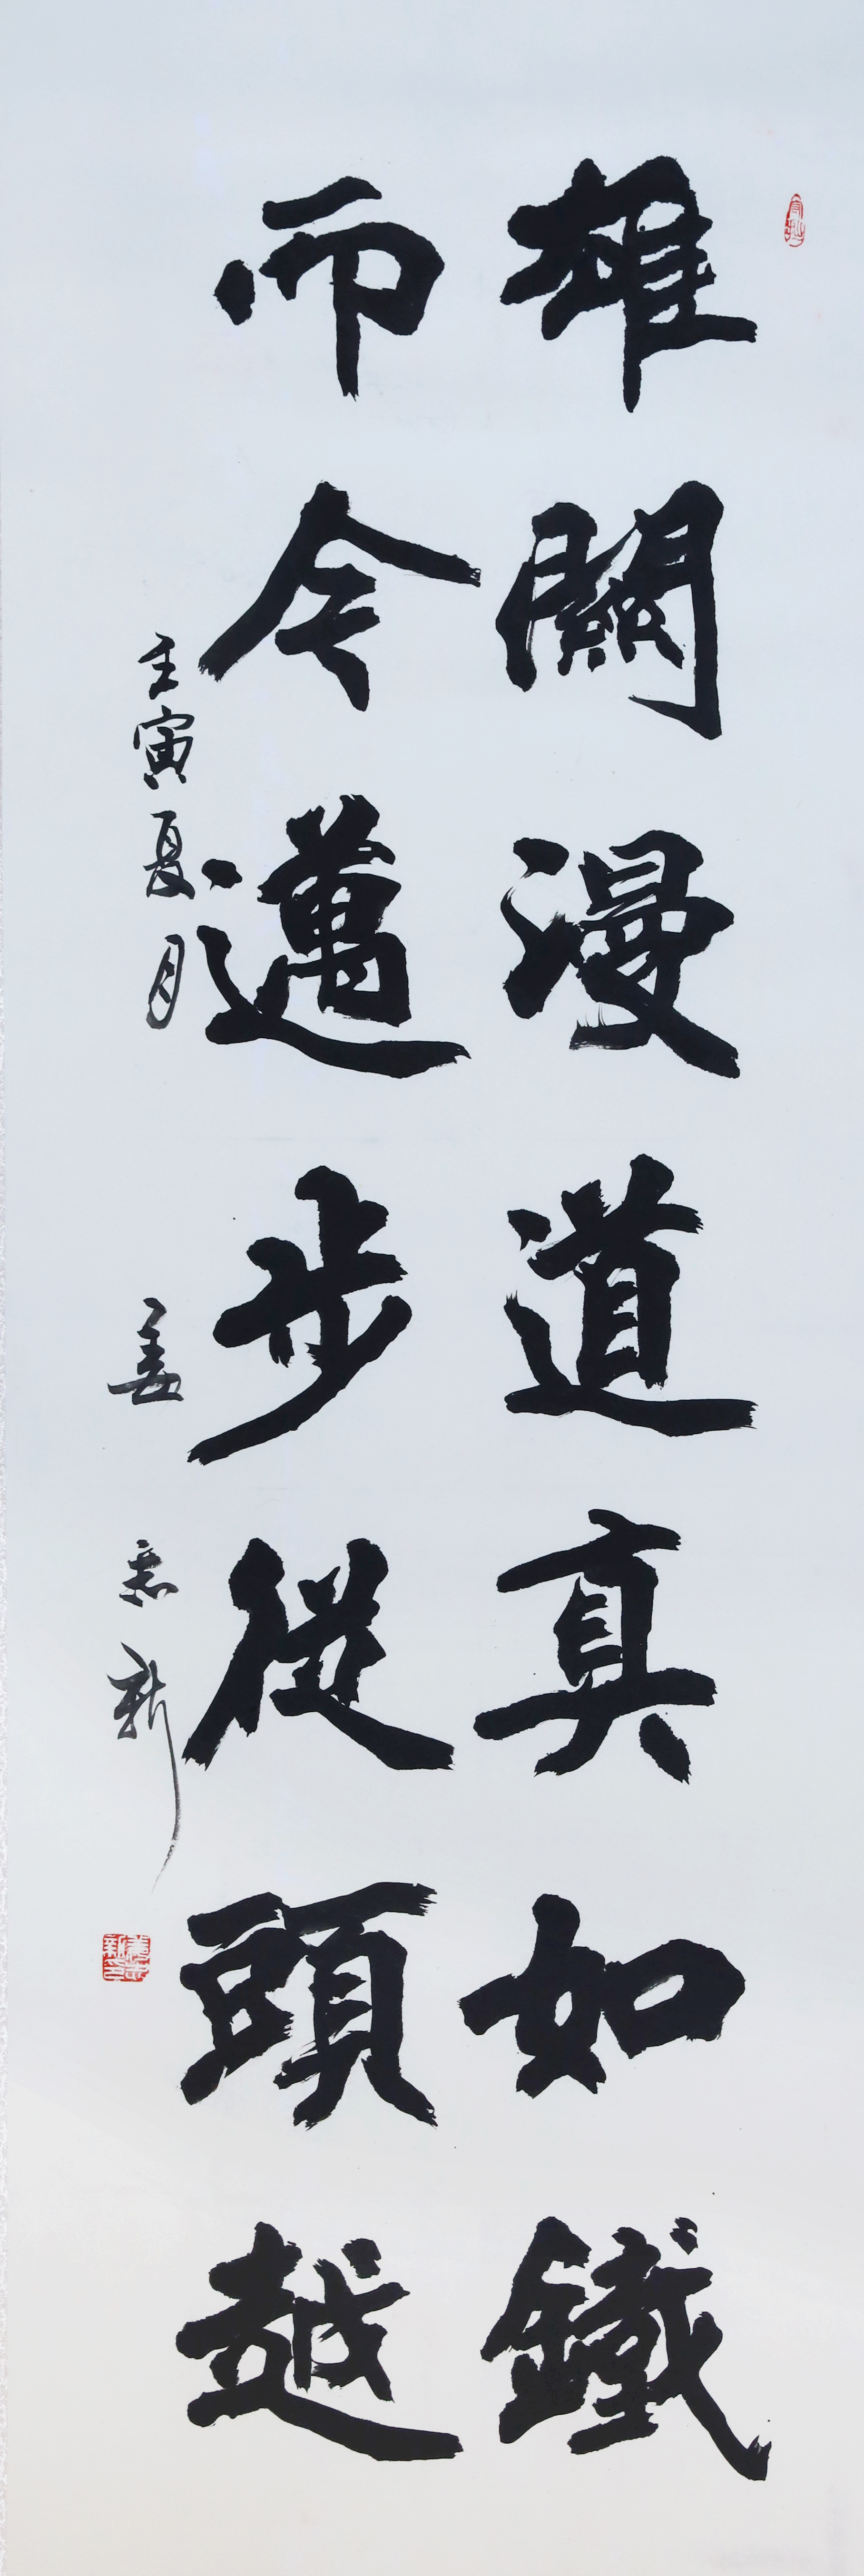 雄關漫道真如鐵
而今邁步從頭越
壬寅夏月 姜志新